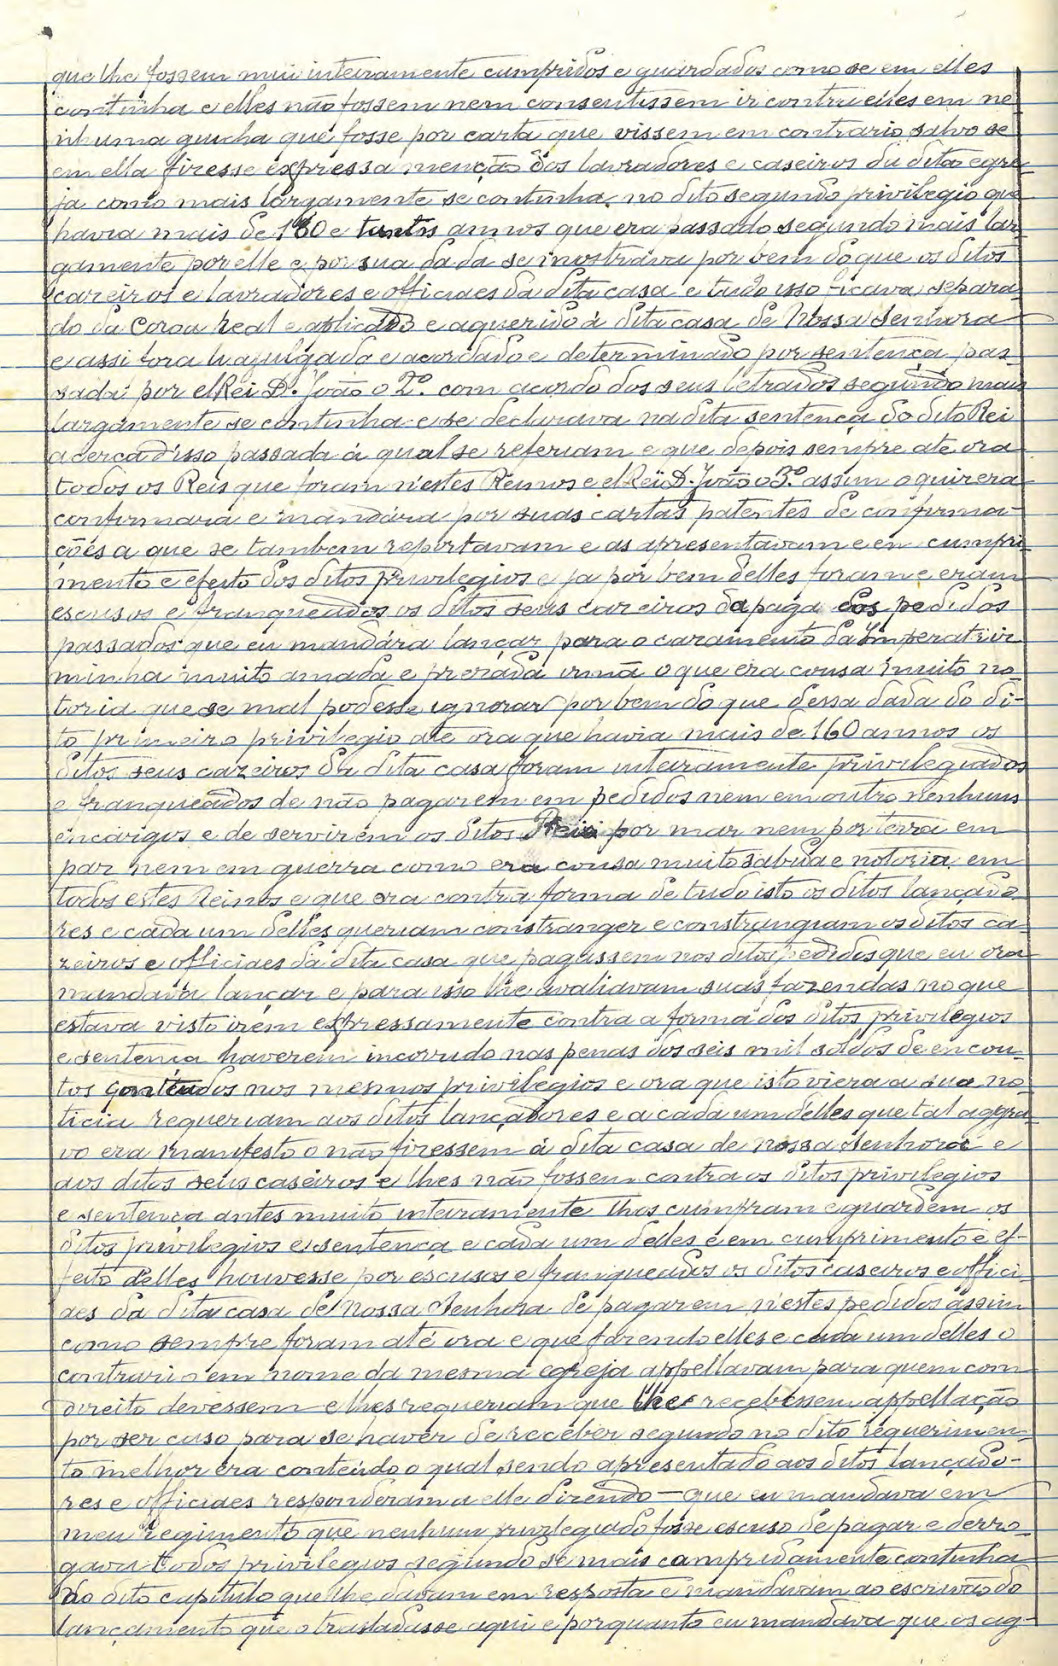 que lhe fossem mui inteiramente cumpridos e guardados como se em elles
continha e elles não fossem nem consentissem ir contra elles em ne
nhuma que fosse por carta que vissem em contrario salvo se
em ella fizesse expressa menção dos lavradores e caseiros da dita egre
ja como mais largamente se continha no dito segundo privilegio que
havia mais de e tantos annos que era passado segundo mais lar
gamente por elle e por sua dada se mostrava por bem do que os ditos
cazeiros e lavradores e officiaes da dita casa e tudo isso ficava separa
do da Coroa Real e aplicado e aquerido á dita casa de Nossa Senhora
e assi fora la julgado e acordado e determinado por sentença pas
sada por elRei D. João o 2º. com acordo dos seus letrados segundo mais
largamente se continha e se declarava na dita sentença do dito Rei
acerca d'isso passada á qual se referiam e que depois sempre até ora
todos os Reis que foram n'estes Reinos e el Rei D. João o 3º. assim o quizera
confirmara e mandára por suas cartas patentes de confirma-
ções a que se tambem reportavam e as apresentavam e em cumpri
mento e efeito dos ditos privilegios e ja por bem delles foram e eram
escusos e franqueados os ditos seus cazeiros da paga dos pedidos
passados que eu mandára lançar para o cazamento da Imperatriz
minha muito amada e prezada irmã o que era cousa muito no-
toria que se mal podesse ignorar por bem do que dessa dada do di-
to primeiro privilegio até ora que havia mais de 160 annos os
ditos seus cazeiros da dita casa foram inteiramente privilegiados
e franqueados de não pagarem em pedidos nem em outro nenhuns
encargos e de servirem os ditos Reis por mar nem por terra em
paz nem em guerra como era cousa muito sabida e notoria em
todos estes Reinos e que ora contra forma de tudo isto os ditos lançado
res e cada um delles queriam constranger e constrangiam os ditos ca-
zeiros e officiaes da dita casa que pagassem nos ditos pedidos que eu ora
mandava lançar e para isso lhe avaliavam suas fazendas no que
estava visto irem expressamente contra a forma dos ditos privilegios
e sentença haverem incorrido nas penas dos seis mil soldos de encou-
tos conteudos nos mesmos privilegios e ora que isto viera a sua no
ticia requeriam aos ditos lançadores e a cada um delles que tal aggra
vo era manifesto o não fizessem á dita casa de nossa Senhora e
aos ditos seus caseiros e lhes não fossem contra os ditos privilegios
e sentença antes muito inteiramente lhos cumpram e guardem os
ditos privilegios e sentença e cada um delles e em cumprimento e ef-
feito delles houvesse por escusos e franqueados os ditos caseiros e offici-
aes da dita casa de Nossa Senhora de pagarem n'estes pedidos assim
como sempre foram até ora e que fazendo elles e cada um delles o
contrario em nome da mesma egreja appellavam para quem com
direito devessem e lhes requeriam que lhe recebessem appellação
por ser caso para se haver de receber segundo no dito requerimen-
to melhor era conteúdo o qual sendo apresentado aos ditos lançado-
res e officiaes responderam a elle dizendo — que eu mandava em
meu regimento que nenhum privilegiado fosse escuso de pagar e derro-
gava todos privilegios segundo se mais cumpridamente continha
no dito capitulo que lhe davam em resposta e mandavam ao escrivão do
lançamento que o trasladasse aqui e porquanto eu mandava que os ag-